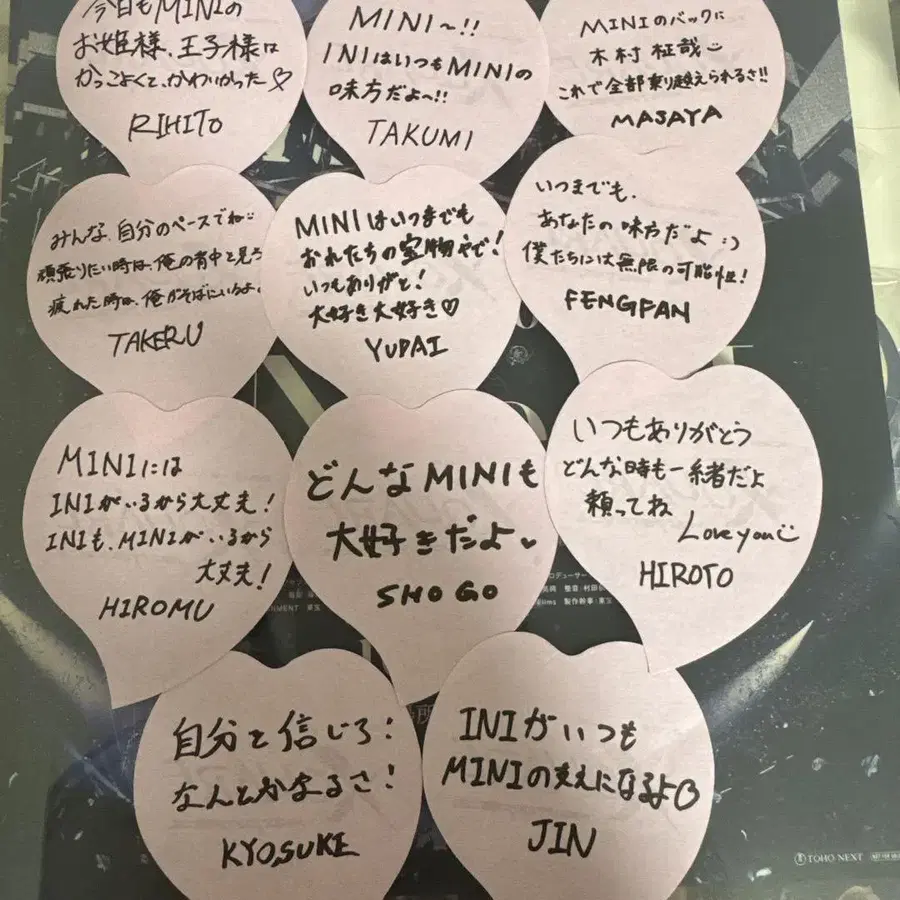 今日もMINIの
お姫様、王子様は
かっこよくて、かわいかった♡
RIHITO
MINI〜!!
INIはいつもMINIの
味方だよ〜!!
TAKUMI
MINIのバックに
木村柾哉
これで全部乗り越えられるさ!!
MASAYA
みんな、自分のペースでね
頑張りたい時は、俺の背中を見ろ
疲れた時は、俺がそばにいるよ。
TAKERU
MINIはいつまでも
おれたちの宝物やで!
いつもありがと!
大好き大好き♡
YUDAI
いつまでも、
あなたの味方だよ :)
僕たちには無限の可能性!
FENGFAN
MINIには
INIがいるから大丈夫!
INIも、MINIがいるから
大丈夫!
HIROMU
どんなMINIも
大好きだよ♥
SHOGO
いつもありがとう
どんな時も一緒だよ
頼ってね
Love you
HIROTO
自分を信じろ!
なんとかなるさ!
KYOSUKE
INIがいつも
MINIの支えになるよ
JIN
プロデューサー
整音:村田
製作幹事:東宝
TOHO NEXT